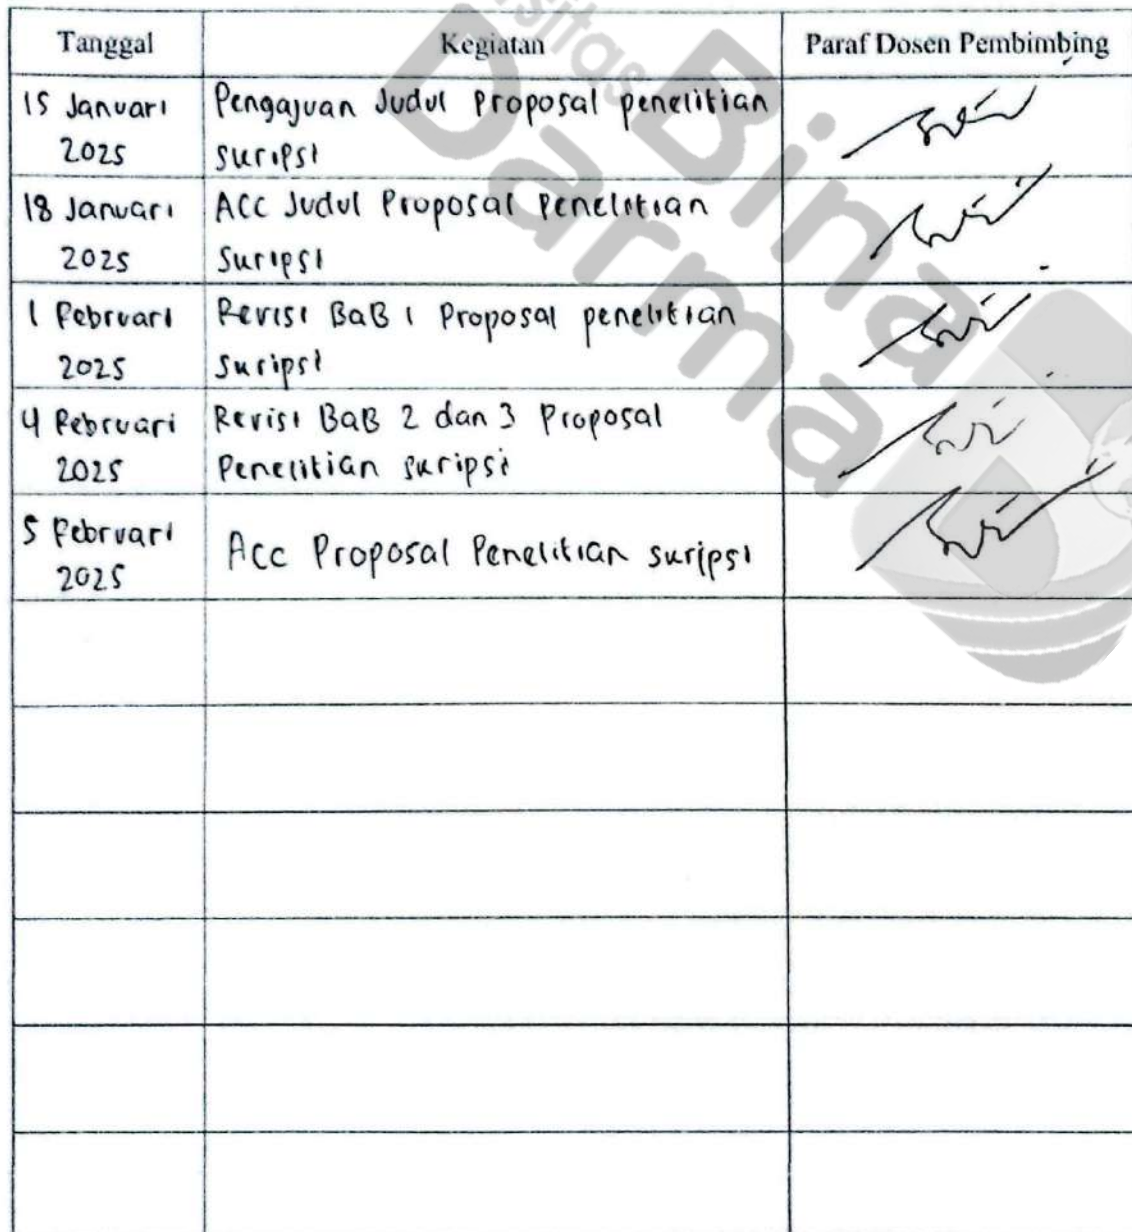 Tanggal Kegiatan Paraf Dosen Pembimbing
15 Januari
2025
Pengajuan Judul Proposal penelitian
suripsi
18 Januari
2025
ACC Judul Proposal Penelitian
Suripsi
1 Februari
2025
Revisi BaB 1 Proposal penelitian
Suripsi
4 Februari
2025
Revisi BaB 2 dan 3 Proposal
Penelitian suripsi
5 Februari
2025
Acc Proposal Penelitian suripsi
Bina
Darma